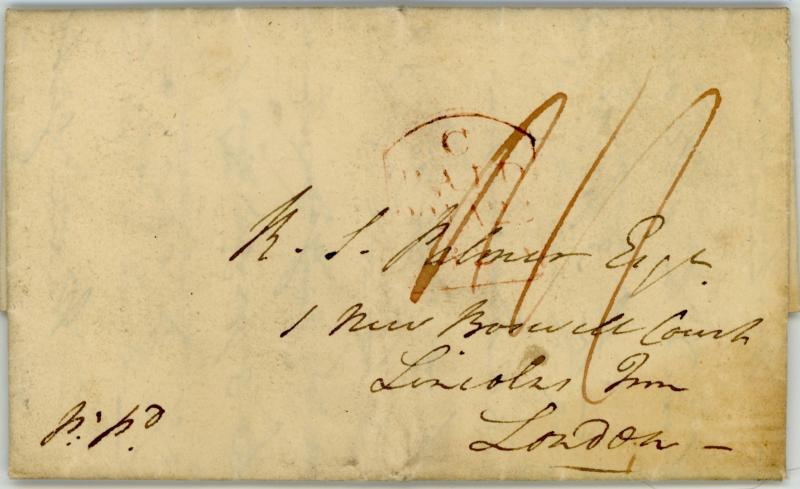 C
PAID
R. S. Palmer Esqr.
1 New Boswell Court
Lincolns Inn
London –
pt. pd.